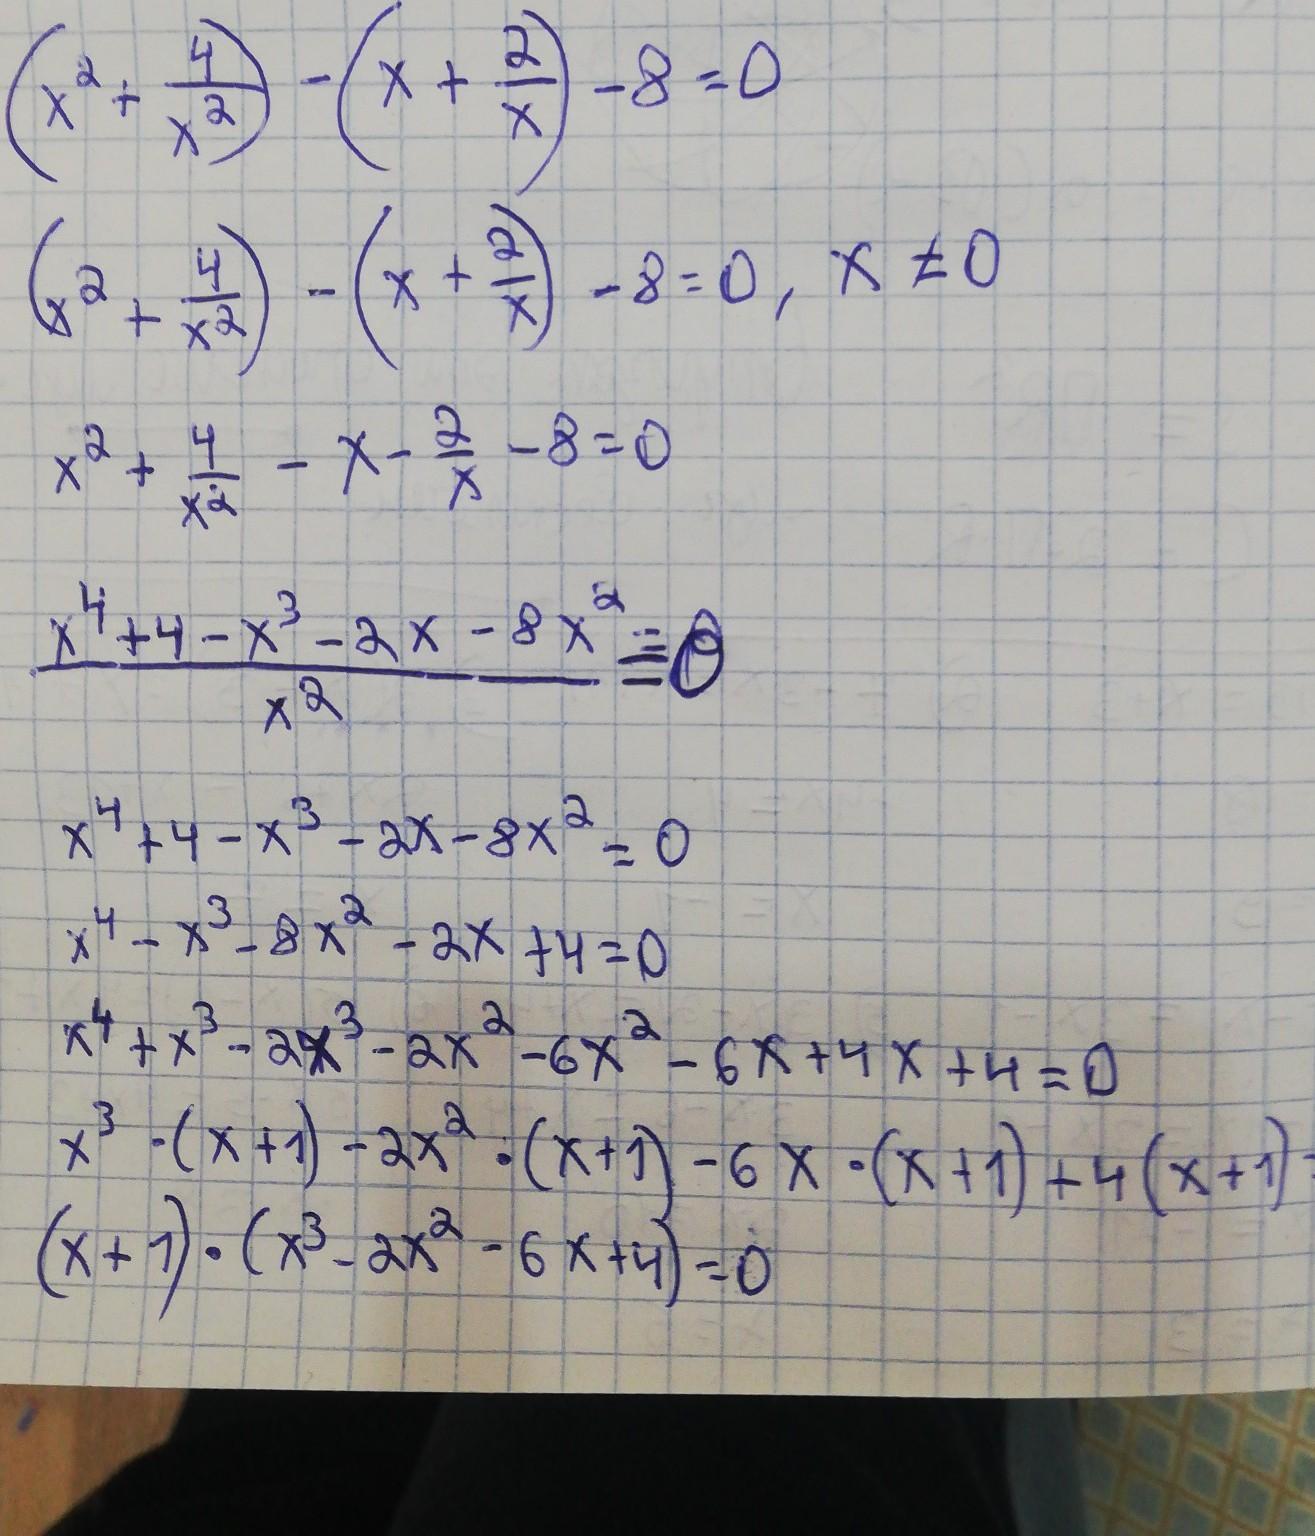 (x² + 4/x²) - (x + 2/x) - 8 = 0
(x² + 4/x²) - (x + 2/x) - 8 = 0, x ≠ 0
x² + 4/x² - x - 2/x - 8 = 0
(x⁴ + 4 - x³ - 2x - 8x²)/x² = 0
x⁴ + 4 - x³ - 2x - 8x² = 0
x⁴ - x³ - 8x² - 2x + 4 = 0
x⁴ + x³ - 2x³ - 2x² - 6x² - 6x + 4x + 4 = 0
x³ · (x + 1) - 2x² · (x + 1) - 6x · (x + 1) + 4(x + 1) =
(x + 1) · (x³ - 2x² - 6x + 4) = 0